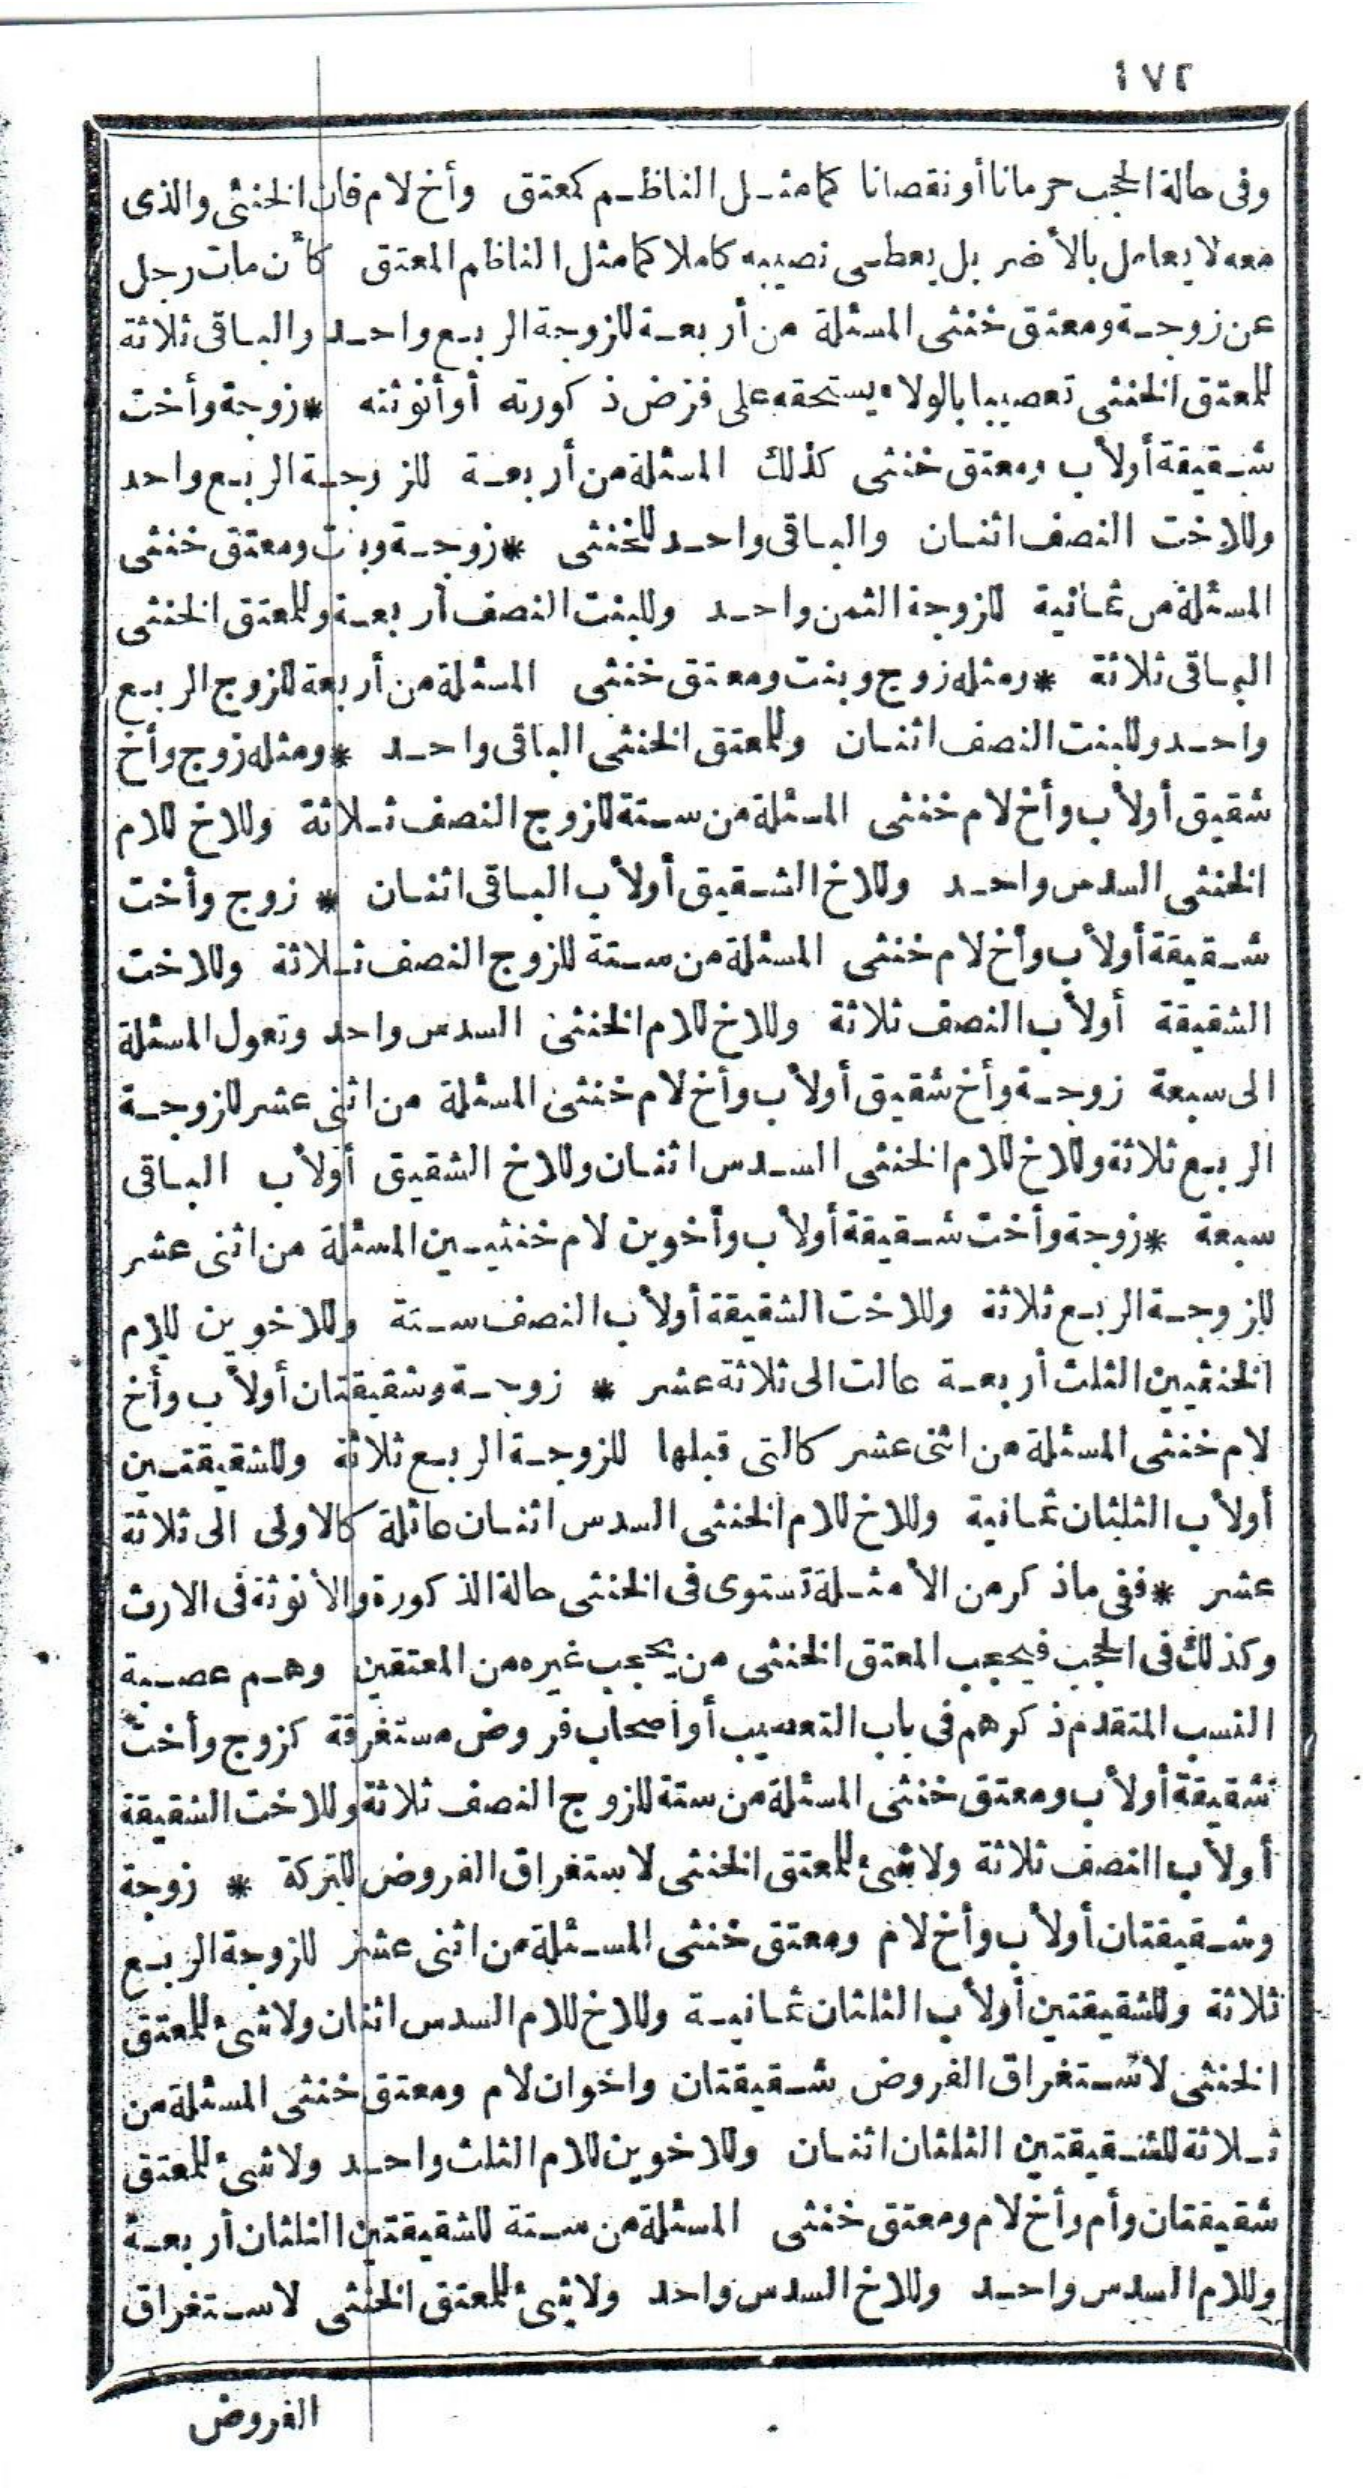 ١٧٢
وفى حالة الحجب حرمانا أو نقصانا كما مثل الناظم كمعتق وأخ لام فان الخنثى والذى
معه لا يعامل بالأضر بل يعطى نصيبه كاملا كما مثل الناظم المعتق كأن مات رجل
عن زوجة ومعتق خنثى المسئلة من أربعة للزوجة الربع واحد والباقى ثلاثة
للمعتق الخنثى تعصيبا بالولاء يستحقه على فرض ذكورته أو أنوثته * زوجة وأخت
شقيقة أولأب ومعتق خنثى كذلك المسئلة من أربعة للزوجة الربع واحد
وللاخت النصف اثنان والباقى واحد للخنثى * زوجة وبنت ومعتق خنثى
المسئلة من ثمانية للزوجة الثمن واحد وللبنت النصف أربعة وللمعتق الخنثى
الباقى ثلاثة * ومثله زوج وبنت ومعتق خنثى المسئلة من أربعة للزوج الربع
واحد وللبنت النصف اثنان وللمعتق الخنثى الباقى واحد * ومثله زوج وأخ
شقيق أولأب وأخ لام خنثى المسئلة من ستة للزوج النصف ثلاثة وللاخ للام
الخنثى السدس واحد وللاخ الشقيق أولأب الباقى اثنان * زوج وأخت
شقيقة أولأب وأخ لام خنثى المسئلة من ستة للزوج النصف ثلاثة وللاخت
الشقيقة أولأب النصف ثلاثة وللاخ للام الخنثى السدس واحد وتعول المسئلة
الى سبعة زوجة وأخ شقيق أولأب وأخ لام خنثى المسئلة من اثنى عشر للزوجة
الربع ثلاثة وللاخ للام الخنثى السدس اثنان وللاخ الشقيق أولأب الباقى
سبعة * زوجة وأخت شقيقة أولأب وأخوين لام خنثيين المسئلة من اثنى عشر
للزوجة الربع ثلاثة وللاخت الشقيقة أولأب النصف ستة وللاخوين للام
الخنثيين الثلث أربعة عالت الى ثلاثة عشر * زوجة وشقيقتان أولأب وأخ
لام خنثى المسئلة من اثنى عشر كالتى قبلها للزوجة الربع ثلاثة وللشقيقتين
أولأب الثلثان ثمانية وللاخ للام الخنثى السدس اثنان عائلة كالاولى الى ثلاثة
عشر * ففى ماذكر من الأمثلة تستوى فى الخنثى حالة الذكورة والأنوثة فى الارث
وكذلك فى الحجب فيحجب المعتق الخنثى من يحجب غيره من المعتقين وهم عصبة
النسب المتقدم ذكرهم فى باب التعصيب أو أصحاب فروض مستغرقة كزوج وأخت
شقيقة أولأب ومعتق خنثى المسئلة من ستة للزوج النصف ثلاثة وللاخت الشقيقة
أولأب النصف ثلاثة ولا شئ للمعتق الخنثى لاستغراق الفروض للتركة * زوجة
وشقيقتان أولأب وأخ لام ومعتق خنثى المسئلة من اثنى عشر للزوجة الربع
ثلاثة وللشقيقتين أولأب الثلثان ثمانية وللاخ للام السدس اثنان ولا شئ للمعتق
الخنثى لاستغراق الفروض شقيقتان واخوان لام ومعتق خنثى المسئلة من
ثلاثة للشقيقتين الثلثان اثنان وللاخوين للام الثلث واحد ولا شئ للمعتق
شقيقتان وأم وأخ لام ومعتق خنثى المسئلة من ستة للشقيقتين الثلثان أربعة
وللام السدس واحد وللاخ السدس واحد ولا شئ للمعتق الخنثى لاستغراق
الفروض